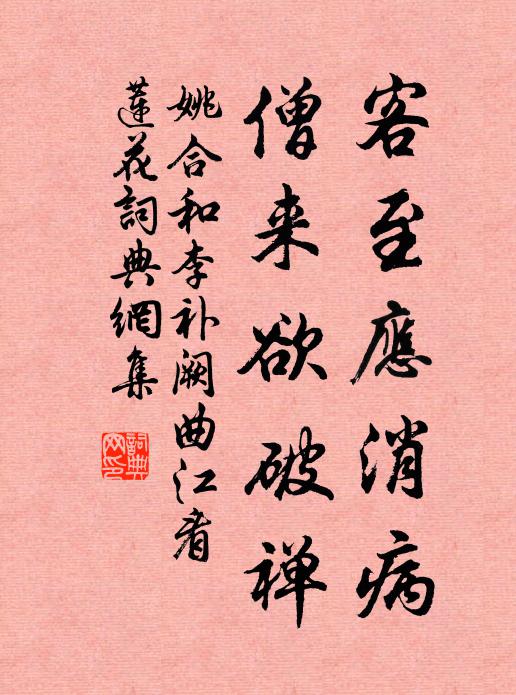 客至應消病
僧来欲破禅
姚合和李补阙曲江看
蓮花詞典網集
詞典
网印